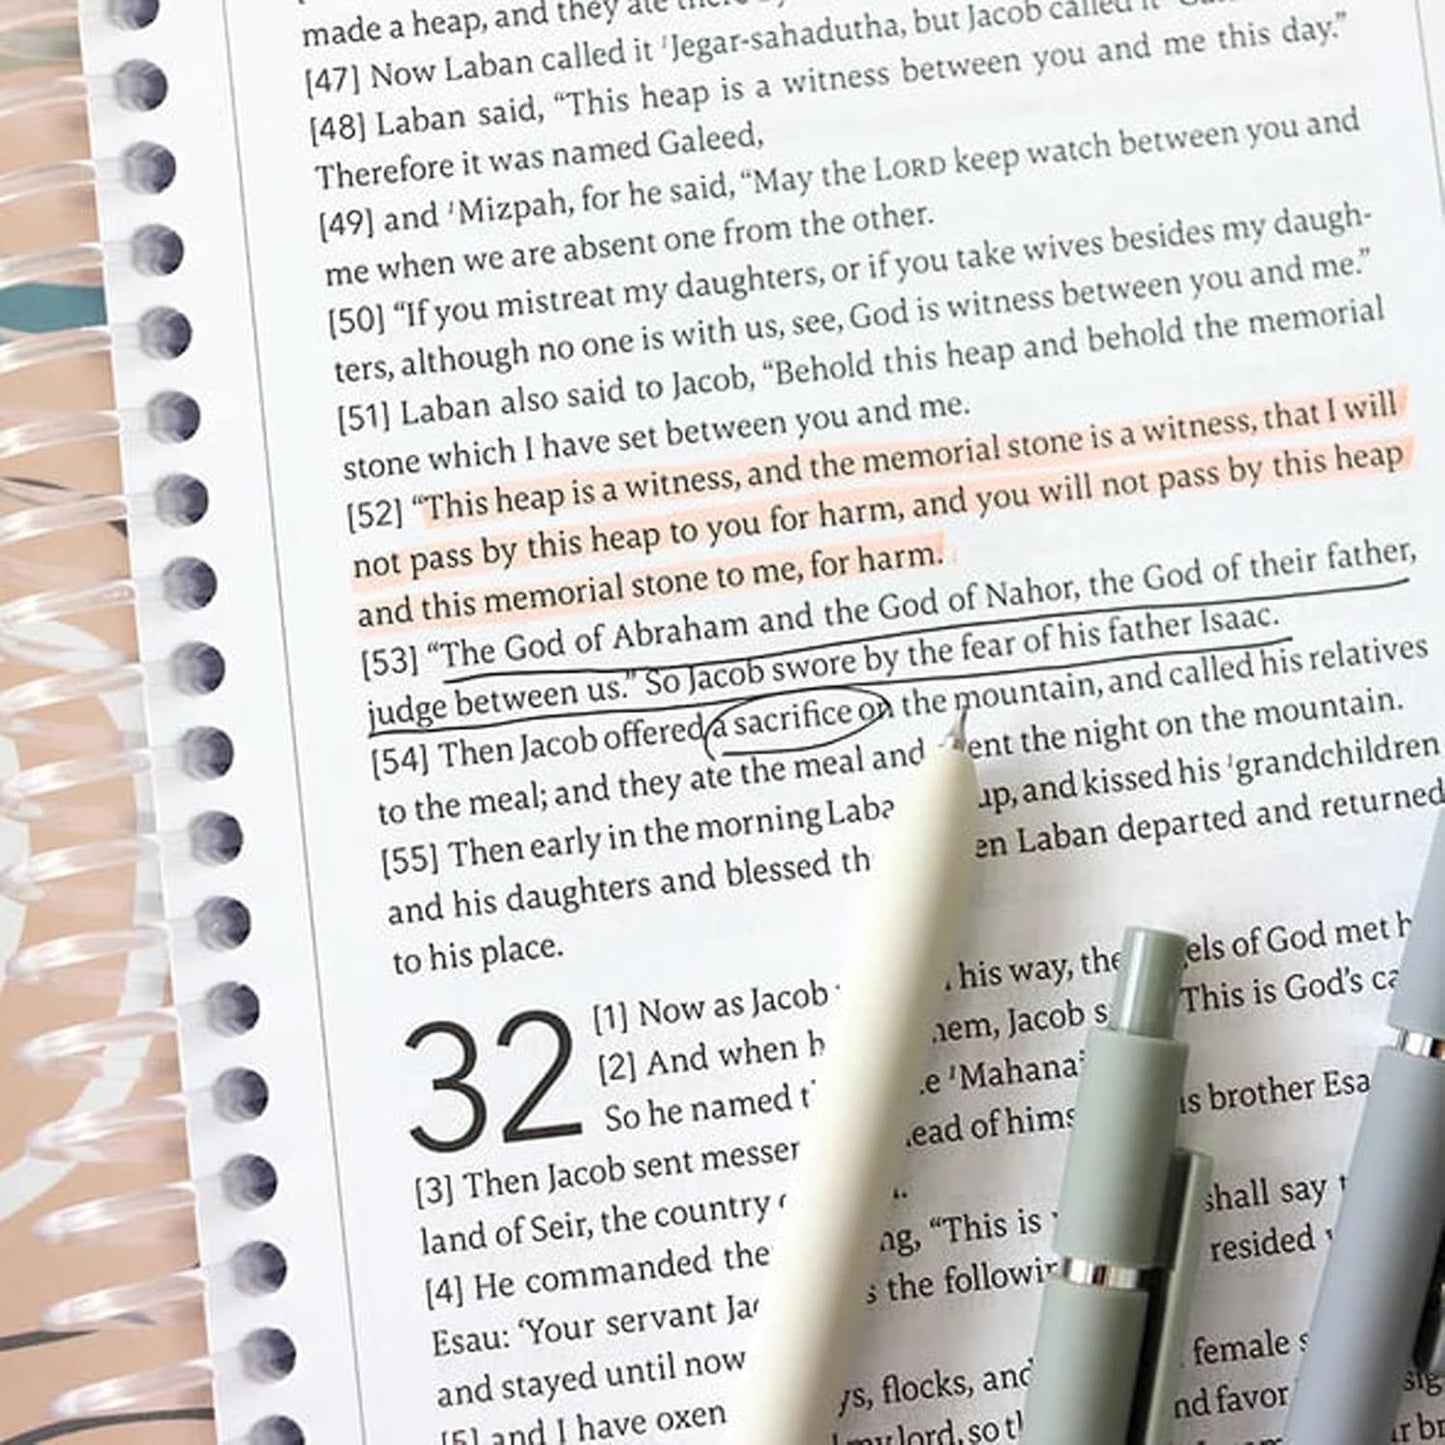 made a heap, and they ate
[47] Now Laban called it ˡJegar-sahadutha, but Jacob called it
[48] Laban said, “This heap is a witness between you and me this day.”
Therefore it was named Galeed,
[49] and ˡMizpah, for he said, “May the LORD keep watch between you and
me when we are absent one from the other.
[50] “If you mistreat my daughters, or if you take wives besides my daugh-
ters, although no one is with us, see, God is witness between you and me.”
[51] Laban also said to Jacob, “Behold this heap and behold the memorial
stone which I have set between you and me.
[52] “This heap is a witness, and the memorial stone is a witness, that I will
not pass by this heap to you for harm, and you will not pass by this heap
and this memorial stone to me, for harm.
[53] “The God of Abraham and the God of Nahor, the God of their father,
judge between us.” So Jacob swore by the fear of his father Isaac.
[54] Then Jacob offered a sacrifice on the mountain, and called his relatives
to the meal; and they ate the meal and ent the night on the mountain.
[55] Then early in the morning Laba up, and kissed his ˡgrandchildren
and his daughters and blessed th en Laban departed and returned
to his place.
32
[1] Now as Jacob his way, the els of God met h
[2] And when h hem, Jacob s This is God’s ca
So he named t e ˡMahana
[3] Then Jacob sent messen ead of hims is brother Esa
land of Seir, the country
[4] He commanded the ng, “This is shall say
Esau: ‘Your servant Jac s the followin resided
and stayed until now
[5] and I have oxen ys, flocks, and female s
my lord, so th nd favor sig